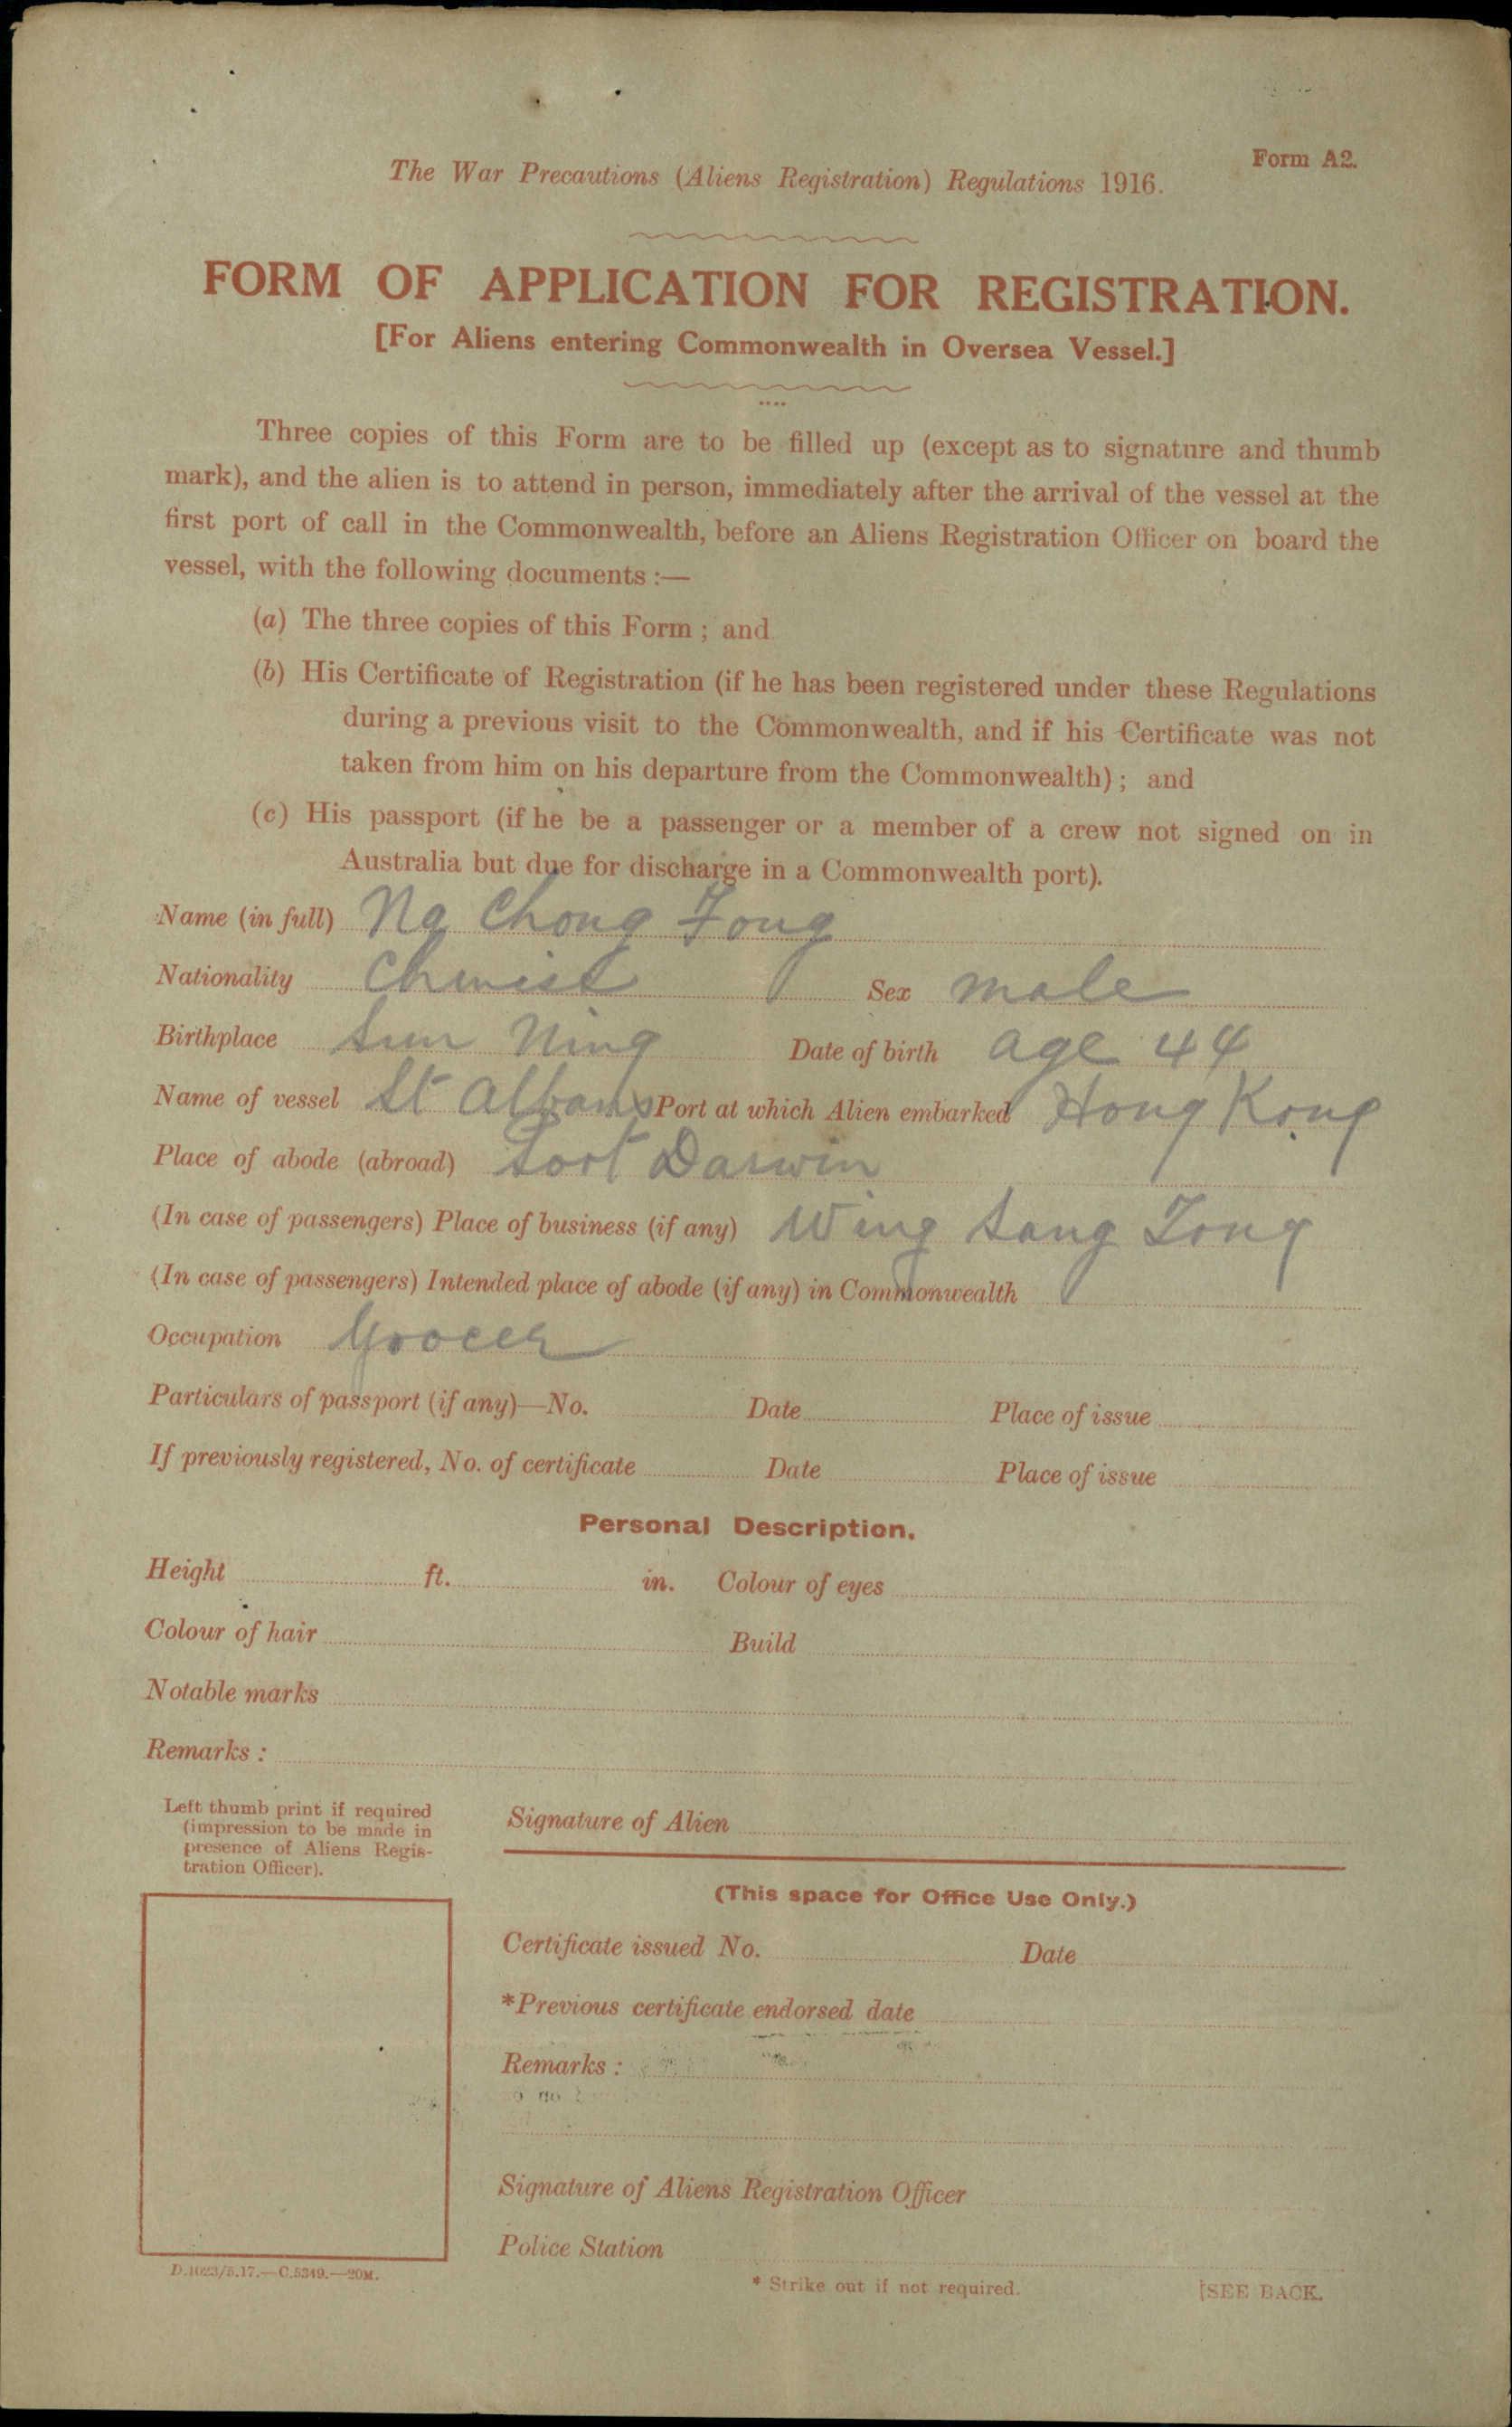 Form A2.
The War Precautions (Aliens Registration) Regulations 1916.
FORM OF APPLICATION FOR REGISTRATION.
[For Aliens entering Commonwealth in Oversea Vessel.]
Three copies of this Form are to be filled up (except as to signature and thumb
mark), and the alien is to attend in person, immediately after the arrival of the vessel at the
first port of call in the Commonwealth, before an Aliens Registration Officer on board the
vessel, with the following documents :—
(a) The three copies of this Form ; and
(b) His Certificate of Registration (if he has been registered under these Regulations
during a previous visit to the Commonwealth, and if his Certificate was not
taken from him on his departure from the Commonwealth) ; and
(c) His passport (if he be a passenger or a member of a crew not signed on in
Australia but due for discharge in a Commonwealth port).
Name (in full) Ng Chong Fong
Nationality Sex male
Birthplace Sun Ning Date of birth age 44
Name of vessel St Albans Port at which Alien embarked Hong Kong
Place of abode (abroad) Port Darwin
(In case of passengers) Place of business (if any) Wing Sang Tong
(In case of passengers) Intended place of abode (if any) in Commonwealth
Occupation Grocer
Particulars of passport (if any)—No. Date Place of issue
If previously registered, No. of certificate Date Place of issue
Personal Description.
Height ft. in. Colour of eyes
Colour of hair Build
Notable marks
Remarks :
Left thumb print if required
(impression to be made in
presence of Aliens Regis-
tration Officer).
Signature of Alien
(This space for Office Use Only.)
Certificate issued No. Date
*Previous certificate endorsed date
Remarks :
Signature of Aliens Registration Officer
Police Station
D.1023/5.17.—C.5349.—20M.
* Strike out if not required.
[SEE BACK.